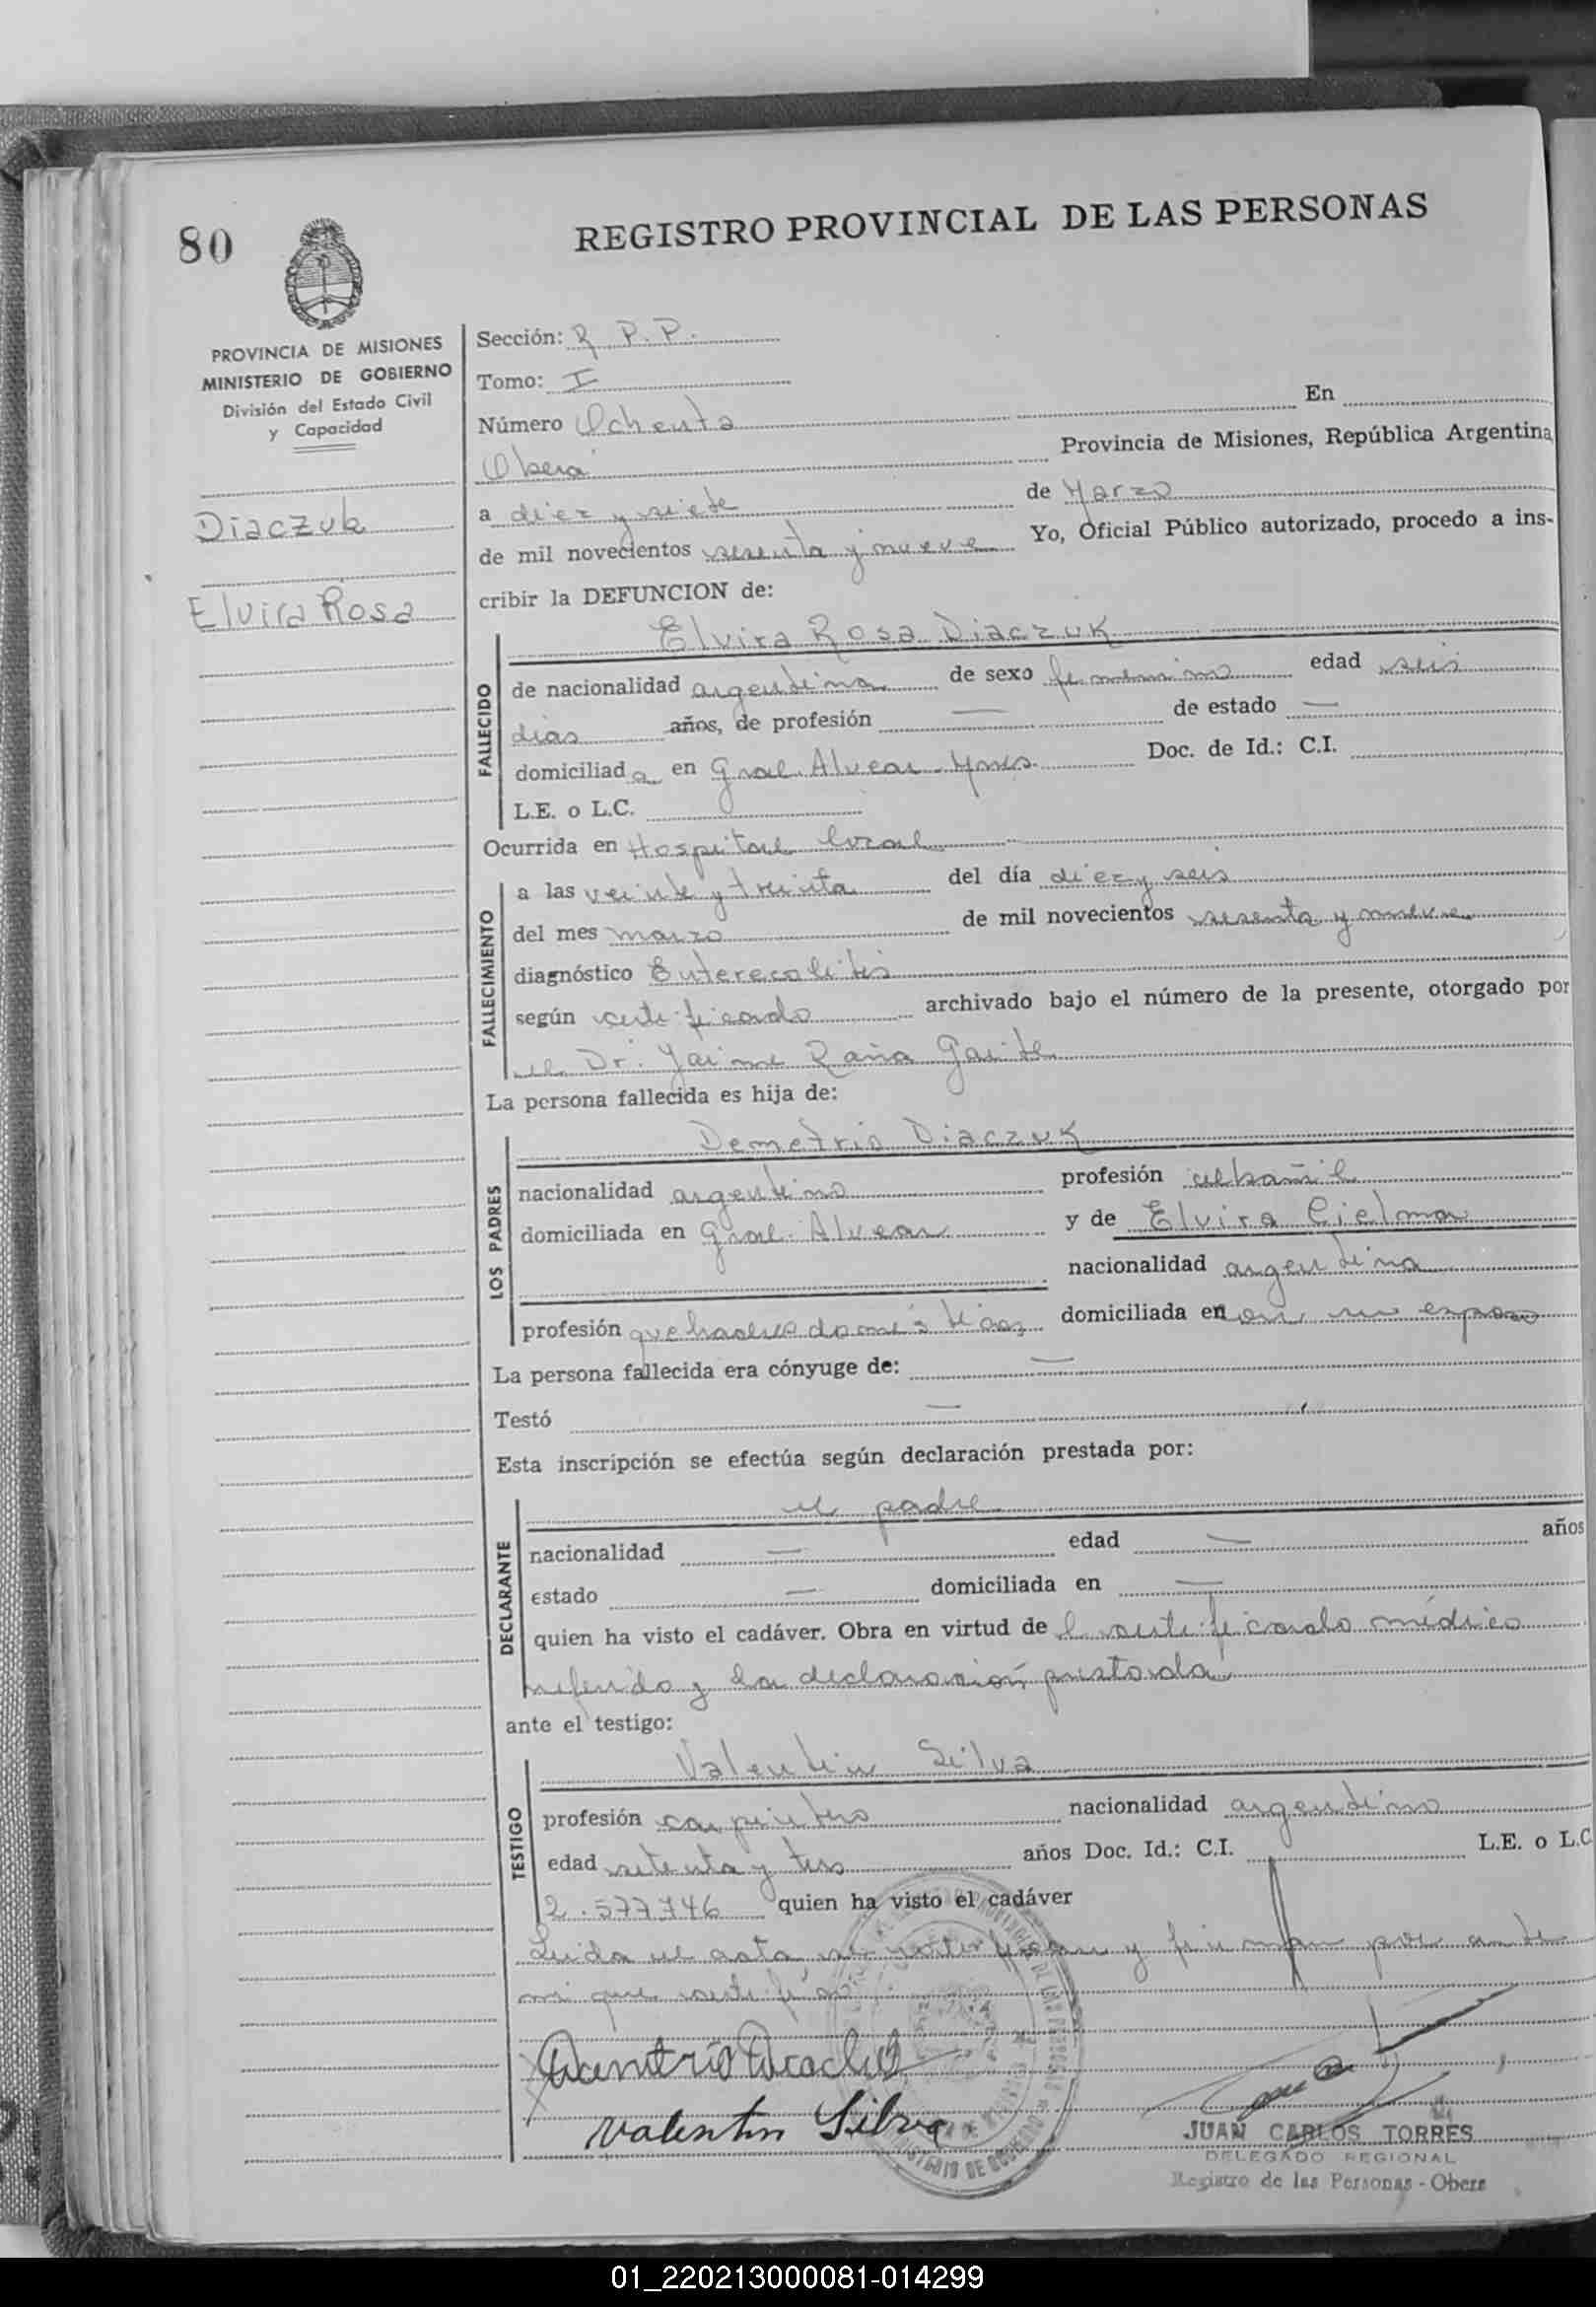 80
REGISTRO PROVINCIAL DE LAS PERSONAS
PROVINCIA DE MISIONES
MINISTERIO DE GOBIERNO
División del Estado Civil
y Capacidad
Diaczuk
Elvira Rosa
Sección: R.P.P.
Tomo: I
Número Ochenta En
Oberá Provincia de Misiones, República Argentina,
a diez y siete de Marzo
de mil novecientos sesenta y nueve Yo, Oficial Público autorizado, procedo a ins-
cribir la DEFUNCION de:
FALLECIDO
Elvira Rosa Diaczuk
de nacionalidad argentina de sexo femenino edad seis
dias años, de profesión — de estado —
domiciliada en Gral. Alvear Mnes. Doc. de Id.: C.I.
L.E. o L.C.
Ocurrida en Hospital local
FALLECIMIENTO
a las veinte y treinta del día diez y seis
del mes marzo de mil novecientos sesenta y nueve
diagnóstico Enterecolitis
según certificado archivado bajo el número de la presente, otorgado por
el Dr. Jaime Raña Gaite
La persona fallecida es hija de:
LOS PADRES
Demetrio Diaczuk
nacionalidad argentino profesión albañil
domiciliada en Gral. Alvear y de Elvira Cielmar
nacionalidad argentina
profesión quehaceres domésticos domiciliada en con su esposo
La persona fallecida era cónyuge de: —
Testó —
Esta inscripción se efectúa según declaración prestada por:
DECLARANTE
el padre
nacionalidad — edad — años
estado — domiciliada en —
quien ha visto el cadáver. Obra en virtud de l certificado médico
referido y la declaración prestada
ante el testigo:
TESTIGO
Valentin Silva
profesión carpintero nacionalidad argentino
edad setenta y tres años Doc. Id.: C.I. L.E. o L.C
2.577.746 quien ha visto el cadáver
Leida el acta se ratifican y firman por ante
mi que certifico.
Valentin Silva
JUAN CARLOS TORRES
DELEGADO REGIONAL
Registro de las Personas - Obera
01_220213000081-014299